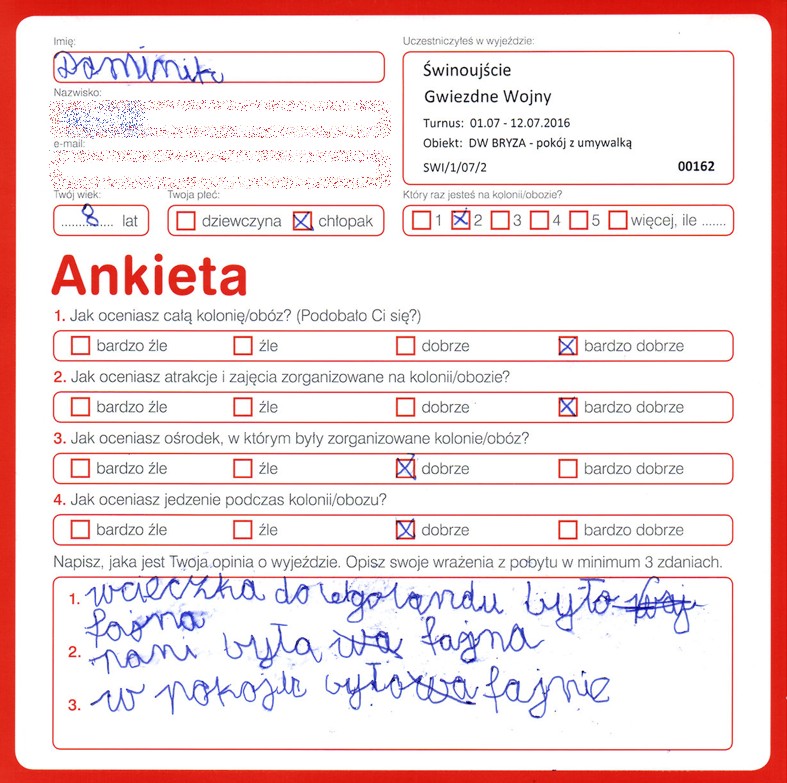 Imię:
Dominik
Uczestniczyłeś w wyjeździe:
Świnoujście
Gwiezdne Wojny
Turnus: 01.07 - 12.07.2016
Obiekt: DW BRYZA - pokój z umywalką
SWI/1/07/2 00162
Nazwisko:
e-mail:
Twój wiek:
8 lat
Twoja płeć:
dziewczyna chłopak
Który raz jesteś na kolonii/obozie?
1 2 3 4 5 więcej, ile .......
Ankieta
1. Jak oceniasz całą kolonię/obóz? (Podobało Ci się?)
bardzo źle źle dobrze bardzo dobrze
2. Jak oceniasz atrakcje i zajęcia zorganizowane na kolonii/obozie?
bardzo źle źle dobrze bardzo dobrze
3. Jak oceniasz ośrodek, w którym były zorganizowane kolonie/obóz?
bardzo źle źle dobrze bardzo dobrze
4. Jak oceniasz jedzenie podczas kolonii/obozu?
bardzo źle źle dobrze bardzo dobrze
Napisz, jaka jest Twoja opinia o wyjeździe. Opisz swoje wrażenia z pobytu w minimum 3 zdaniach.
1. wcieczka do byto
fajna
2. pani była fajna
3. w pokoju było fajnie